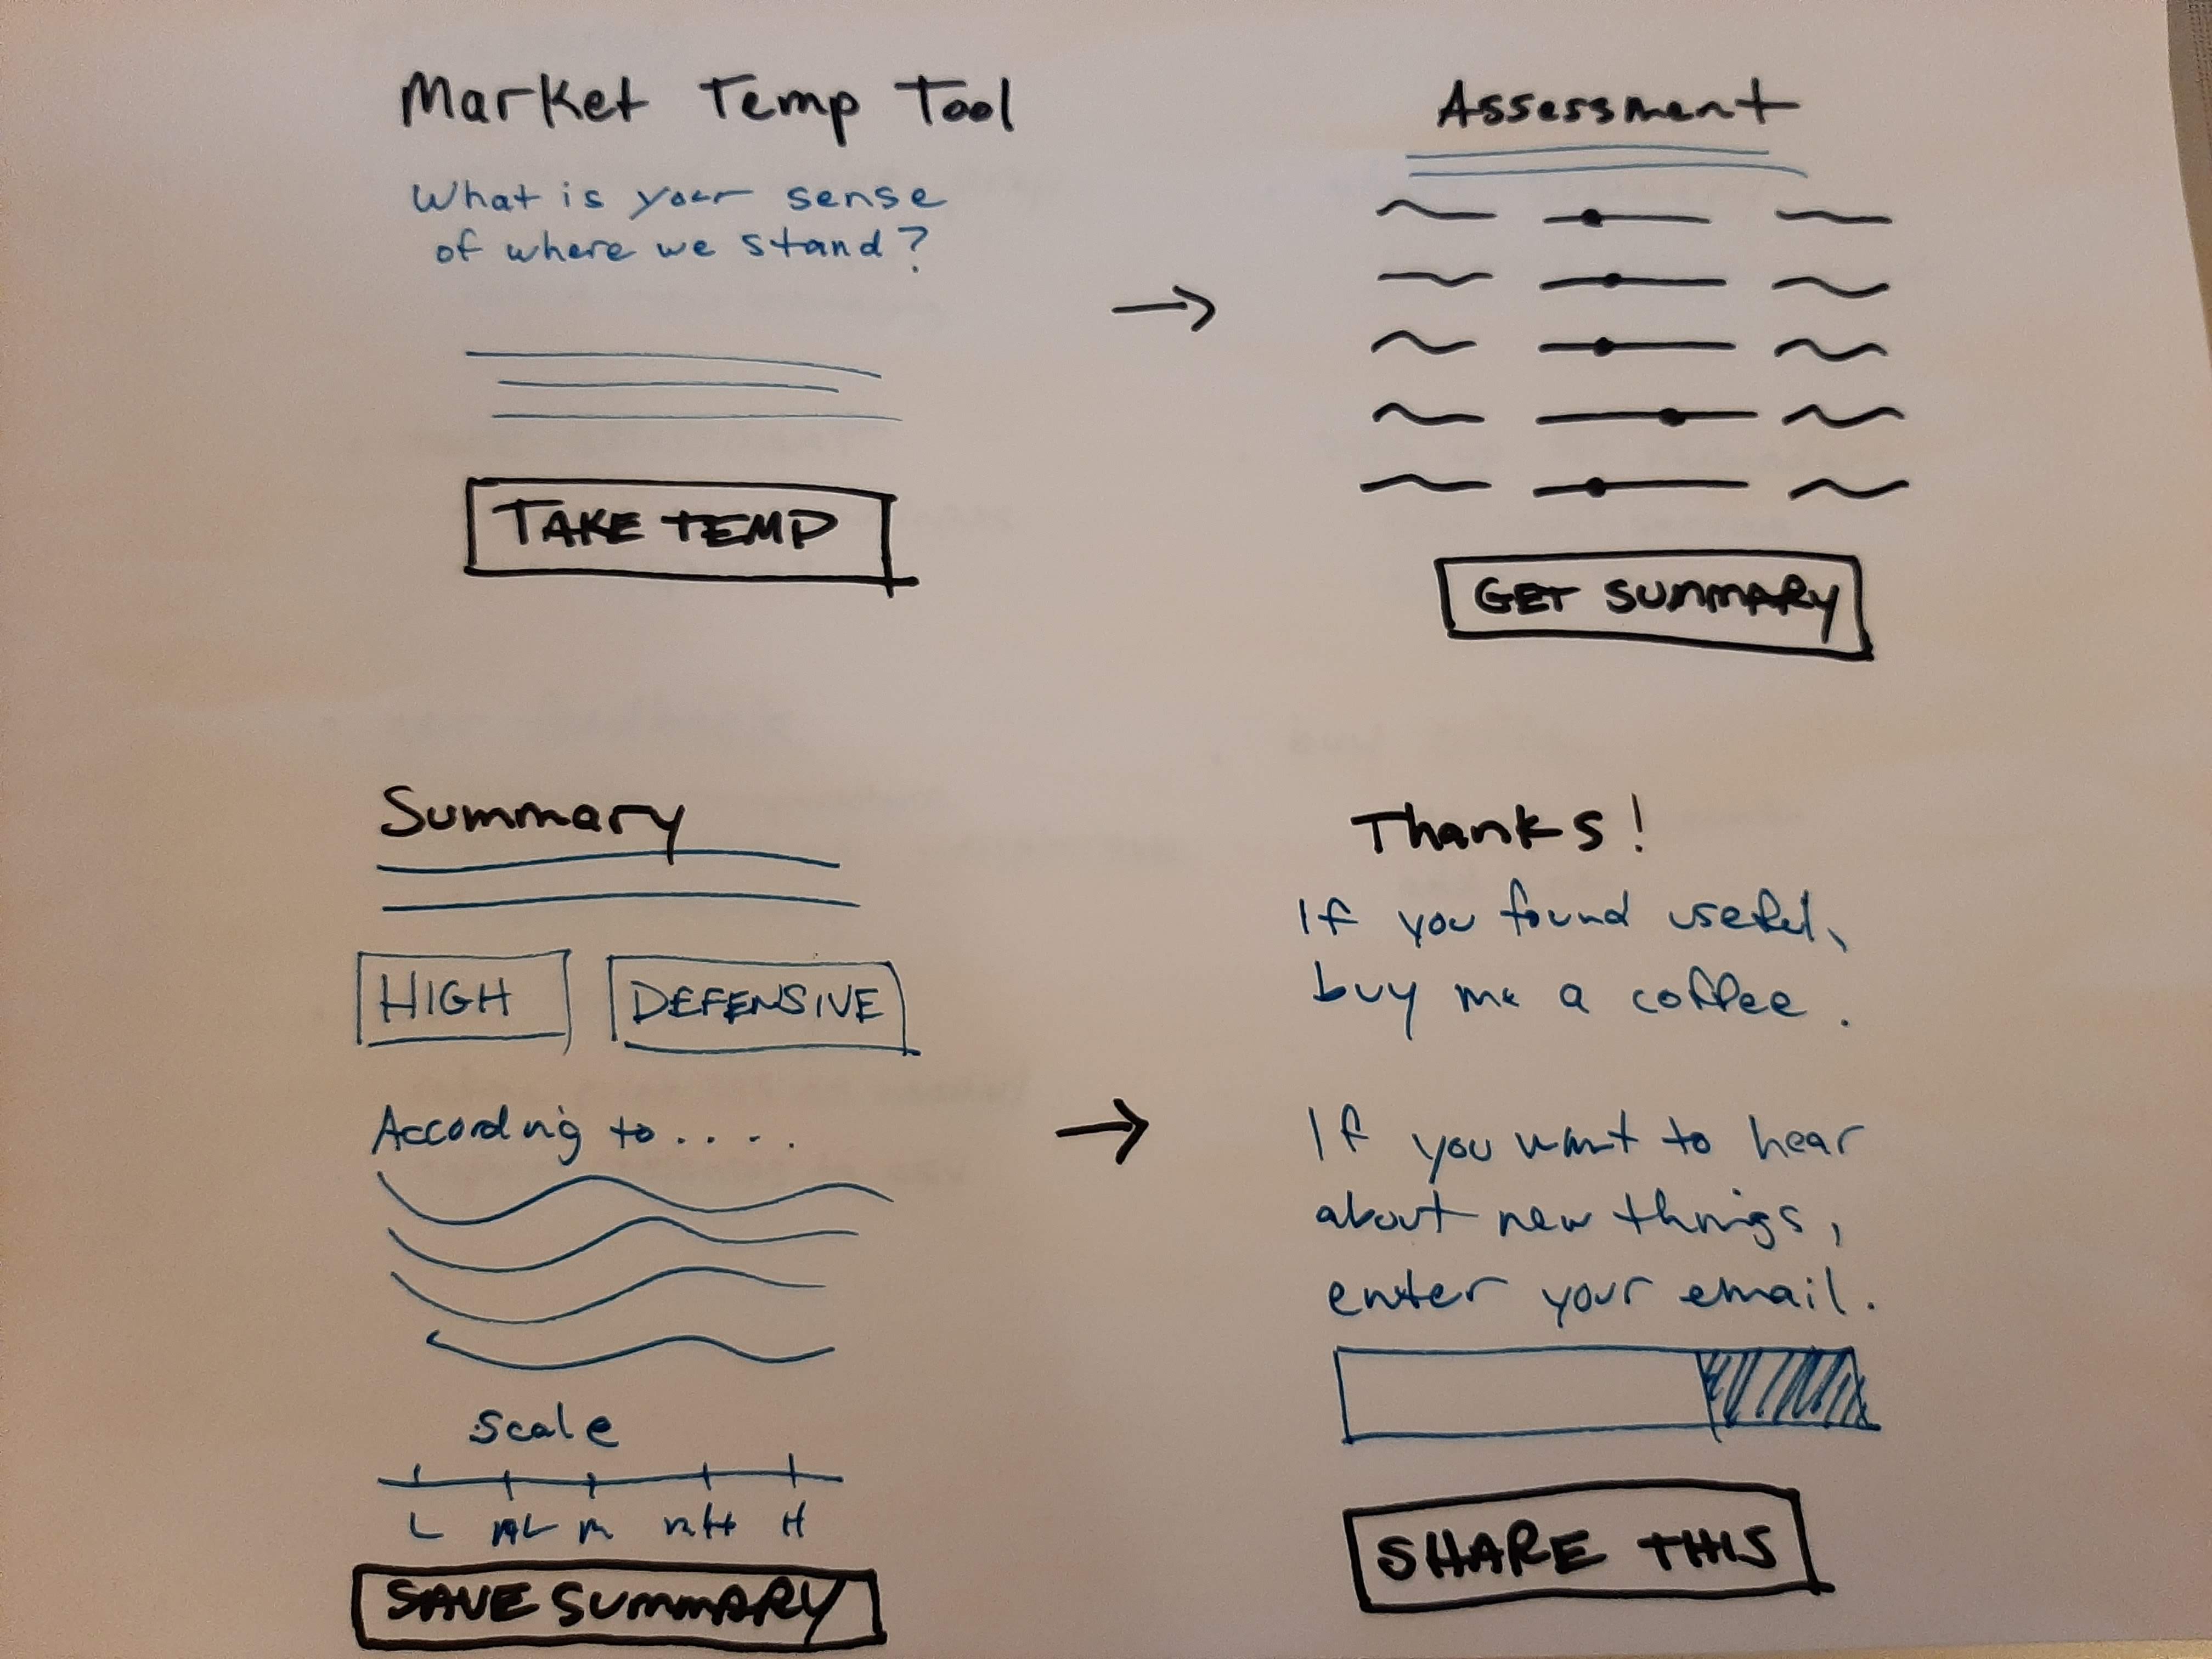 Market Temp Tool
What is your sense
of where we stand?
TAKE TEMP
Assessment
GET SUMMARY
Summary
HIGH
DEFENSIVE
According to.....
Scale
L ML M MH H
SAVE SUMMARY
Thanks!
If you found useful,
buy me a coffee.
If you want to hear
about new things,
enter your email.
SHARE THIS